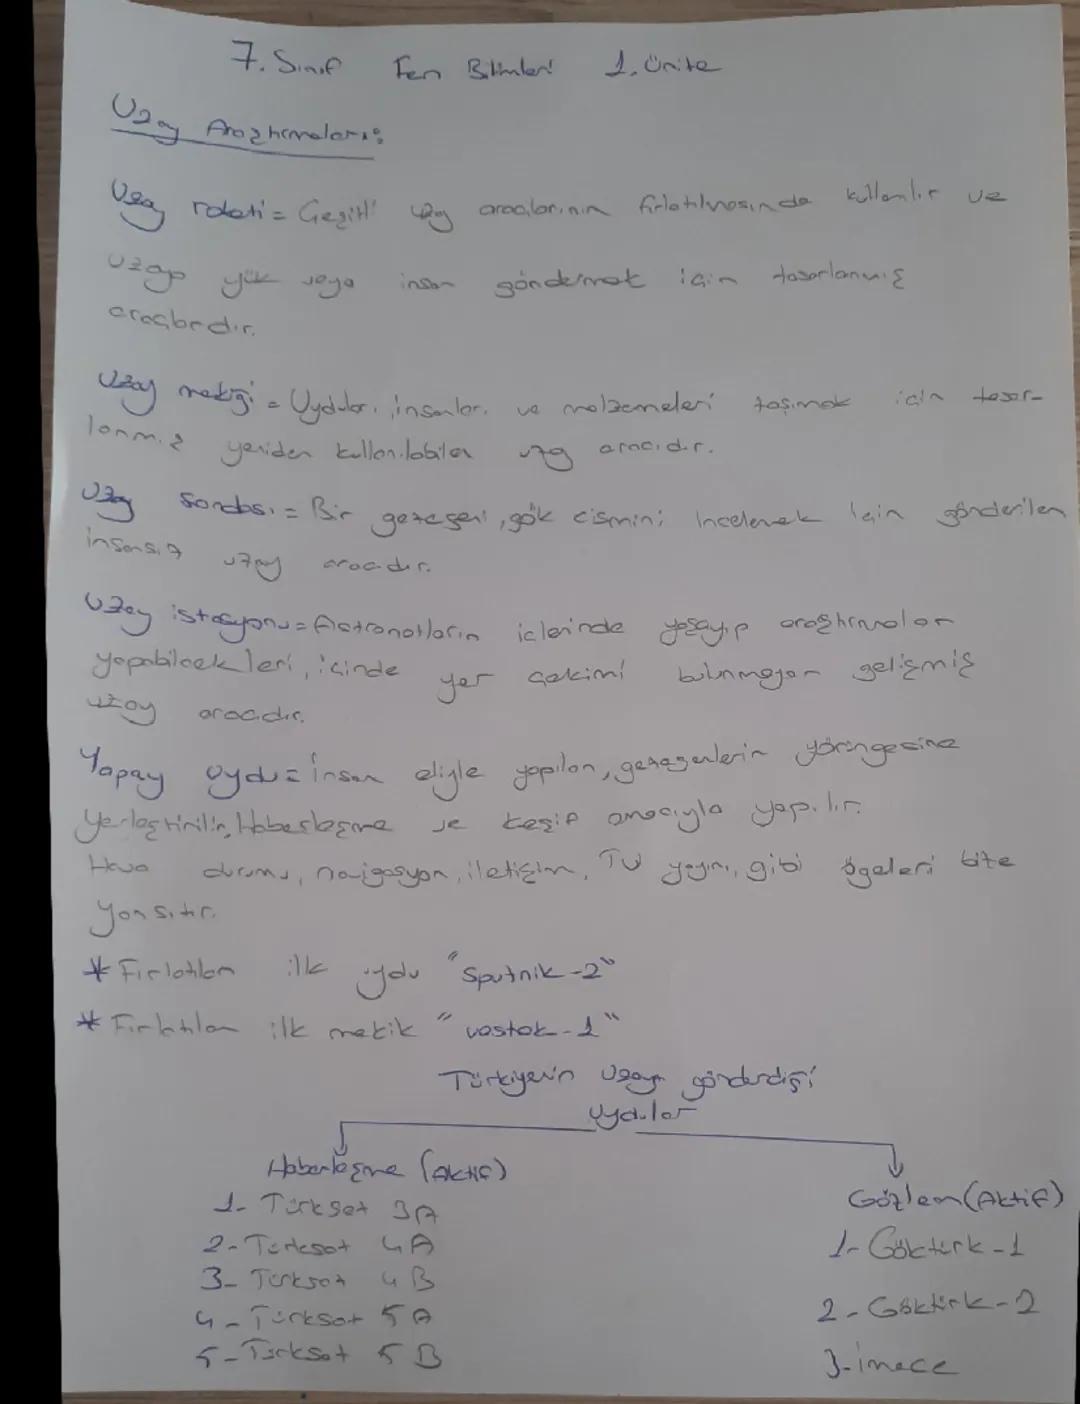 7. Sınıf Fen Bilimleri 1. Ünite
Uzay Araştırmaları:
Uzay roketi = Çeşitli uzay araçlarının fırlatılmasında kullanılır ve
uzaya yük veya insan göndermek için tasarlanmış
araçlardır.
Uzay mekiği = Uyduları, insanları ve malzemeleri taşımak için tasar-
lanmış yeniden kullanılabilen uzay aracıdır.
Uzay Sondası = Bir gezegeni, gök cismini incelemek için gönderilen
insansız uzay aracıdır.
Uzay istasyonu = Astronotların içlerinde yaşayıp araştırmalar
yapabilecekleri, içinde yer çekimi bulunmayan gelişmiş
uzay aracıdır.
Yapay uydu = İnsan eliyle yapılan, gezegenlerin yörüngesine
yerleştirilir, Haberleşme ve keşif amacıyla yapılır.
Hava durumu, navigasyon, iletişim, TV yayını, gibi ögeleri bize
yansıtır.
* Fırlatılan ilk uydu "Sputnik-2"
* Fırlatılan ilk mekik "vostok-1"
Türkiyenin uzaya gönderdiği
uydular
Haberleşme (Aktif)
1- Türksat 3A
2- Türksat 4A
3- Türksat 4B
4- Türksat 5A
5- Türksat 5B
Gözlem (Aktif)
1- Göktürk-1
2- Göktürk-2
3- imece